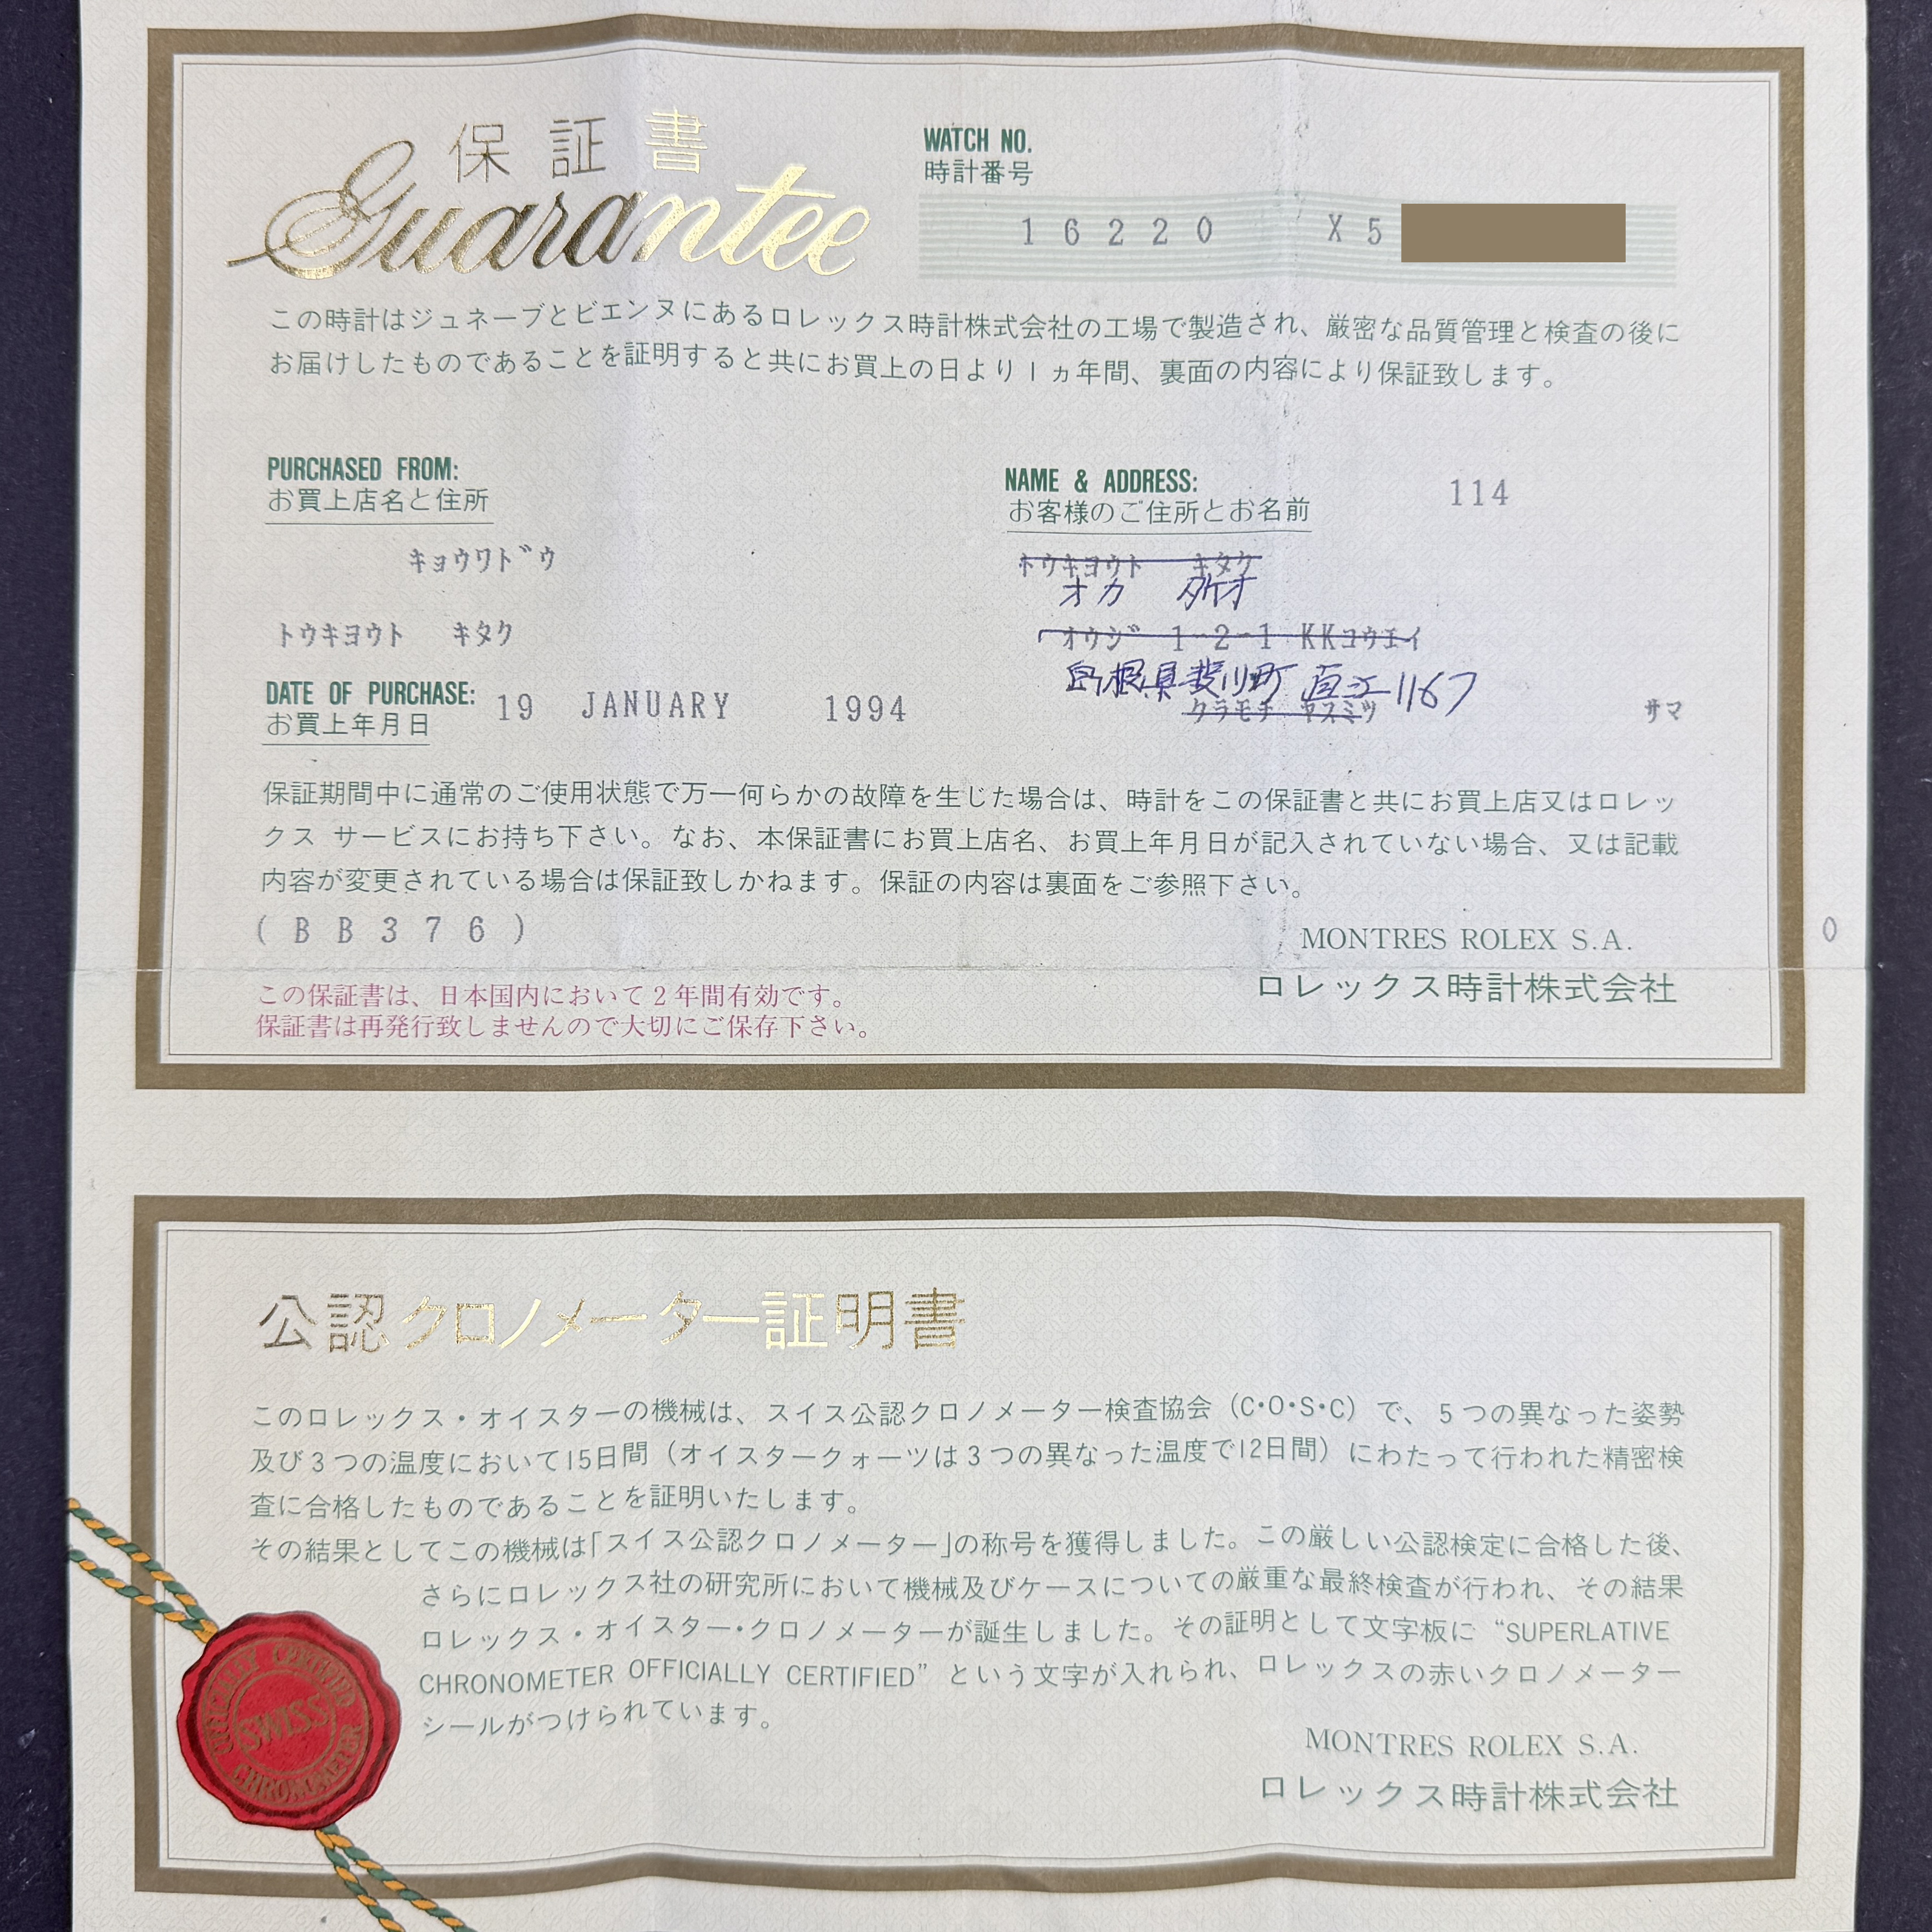 保証書
Guarantee
WATCH NO.
時計番号
16220 X5
この時計はジュネーブとビエンヌにあるロレックス時計株式会社の工場で製造され、厳密な品質管理と検査の後に
お届けしたものであることを証明すると共にお買上の日より1ヵ年間、裏面の内容により保証致します。
PURCHASED FROM:
お買上店名と住所
キョウワドウ
トウキヨウト キタク
DATE OF PURCHASE:
お買上年月日
19 JANUARY 1994
NAME & ADDRESS:
お客様のご住所とお名前
114
トウキヨウト キタク
オカ タケオ
オウジ 1-2-1 KKコウエイ
島根県斐川町 直江1167
クラモチ ヤスミツ
サマ
保証期間中に通常のご使用状態で万一何らかの故障を生じた場合は、時計をこの保証書と共にお買上店又はロレッ
クス サービスにお持ち下さい。なお、本保証書にお買上店名、お買上年月日が記入されていない場合、又は記載
内容が変更されている場合は保証致しかねます。保証の内容は裏面をご参照下さい。
(BB376)
MONTRES ROLEX S.A.
0
ロレックス時計株式会社
この保証書は、日本国内において2年間有効です。
保証書は再発行致しませんので大切にご保存下さい。
公認クロノメーター証明書
このロレックス・オイスターの機械は、スイス公認クロノメーター検査協会(C・O・S・C)で、5つの異なった姿勢
及び3つの温度において15日間(オイスタークォーツは3つの異なった温度で12日間)にわたって行われた精密検
査に合格したものであることを証明いたします。
その結果としてこの機械は「スイス公認クロノメーター」の称号を獲得しました。この厳しい公認検定に合格した後、
さらにロレックス社の研究所において機械及びケースについての厳重な最終検査が行われ、その結果
ロレックス・オイスター・クロノメーターが誕生しました。その証明として文字板に“SUPERLATIVE
CHRONOMETER OFFICIALLY CERTIFIED”という文字が入れられ、ロレックスの赤いクロノメーター
シールがつけられています。
OFFICIALLY CERTIFIED
SWISS
CHRONOMETER
MONTRES ROLEX S.A.
ロレックス時計株式会社